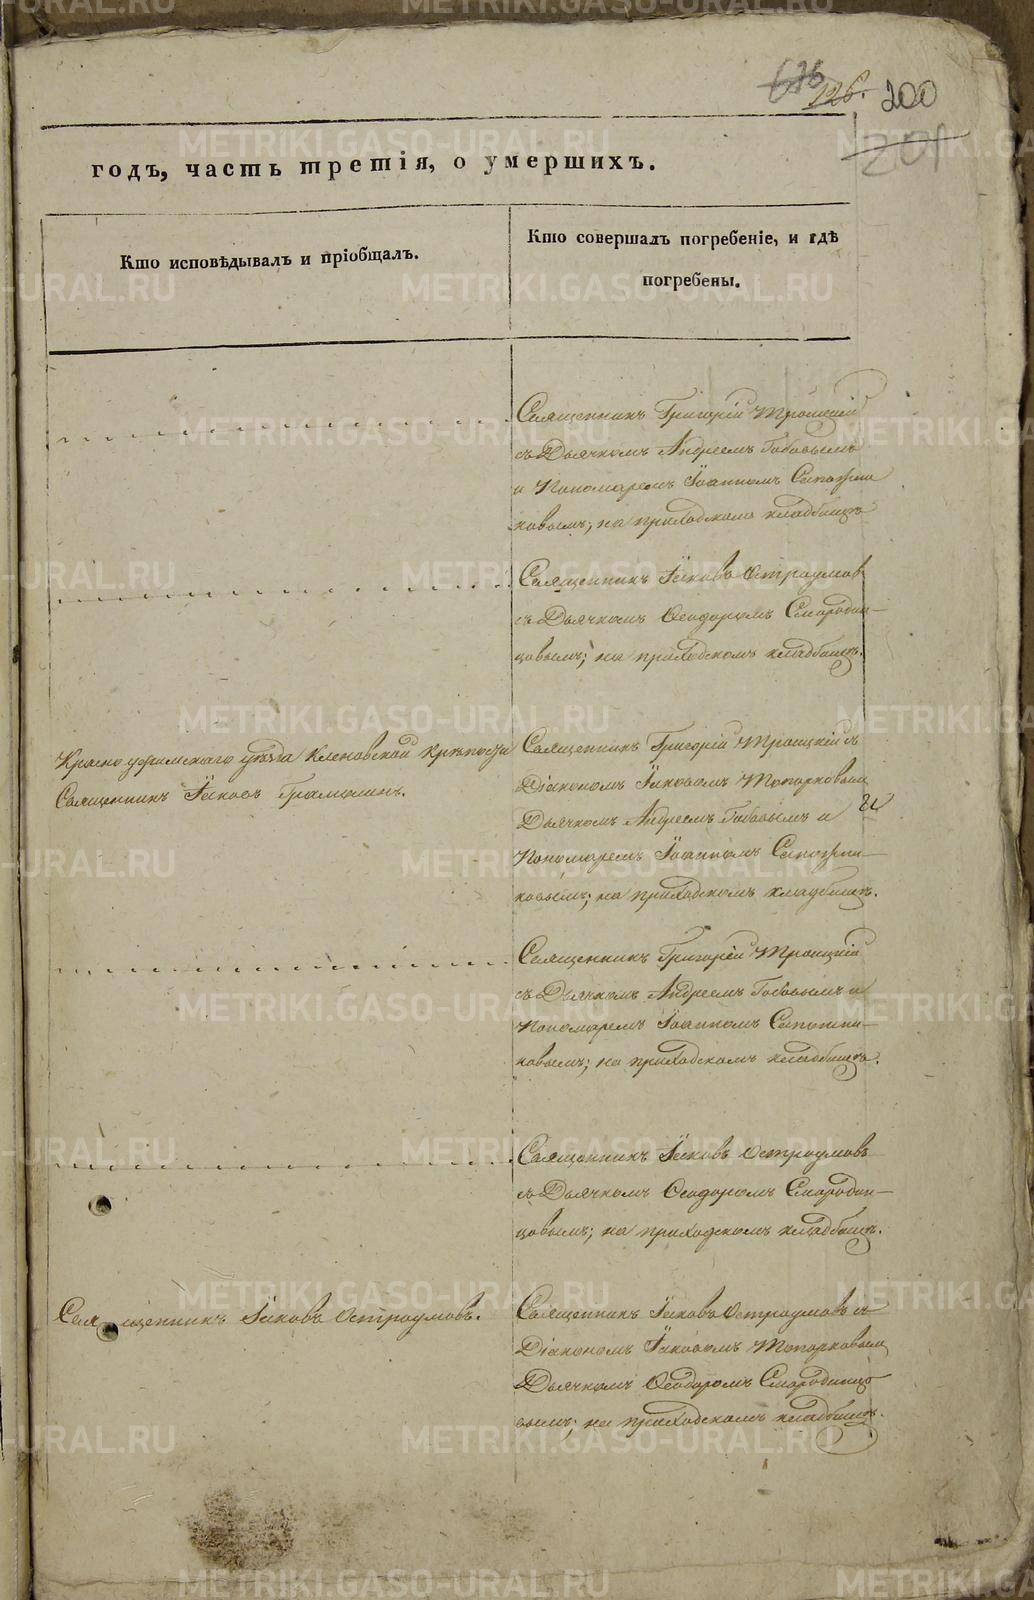 126. 200
201
годъ, часть третія, о умершихъ.
Кто исповѣдывалъ и пріобщалъ.
Кто совершалъ погребеніе, и гдѣ
погребены.
Священникъ Григорій Троицкій
съ Дьячкомъ Андреемъ
и Пономаремъ Іоанномъ Сапожни
ковымъ; на приходскомъ кладбищѣ
Священникъ Іаковъ Остроумовъ
съ Дьячкомъ Ѳеодоромъ Смородин—
цовымъ; на приходскомъ кладбищѣ.
Красноуфимскаго уѣзда Кленовской крѣпости
Священникъ Іаковъ
Священникъ Григорій Троицкій съ
Діакономъ Іаковомъ Топорковымъ
Дьячкомъ Андреемъ и
Пономаремъ Іоанномъ Сапожни—
ковымъ; на приходскомъ кладбищѣ.
Священникъ Григорій Троицкій
съ Дьячкомъ Андреемъ и
Пономаремъ Іоанномъ Сапожни—
ковымъ; на приходскомъ кладбищѣ.
Священникъ Іаковъ Остроумовъ
съ Дьячкомъ Ѳеодоромъ Смородин—
цовымъ; на приходскомъ кладбищѣ.
Священникъ Іаковъ Остроумовъ.
Священникъ Іаковъ Остроумовъ съ
Діакономъ Іаковомъ Топорковымъ
Дьячкомъ Ѳеодоромъ Смородинцо
вымъ; на приходскомъ кладбищѣ.
METRIKI.GASO-URAL.RU